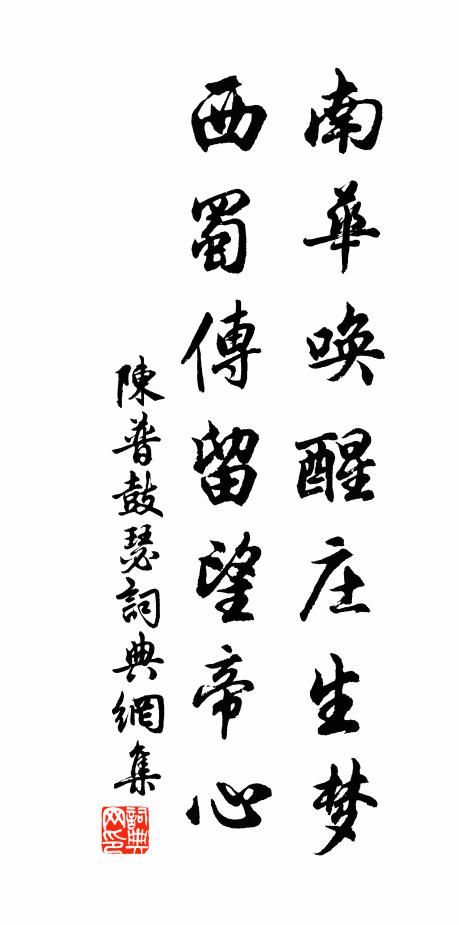 南華唤醒庄生梦
西蜀傳留望帝心
陳普鼓瑟詞典網集
詞典网印